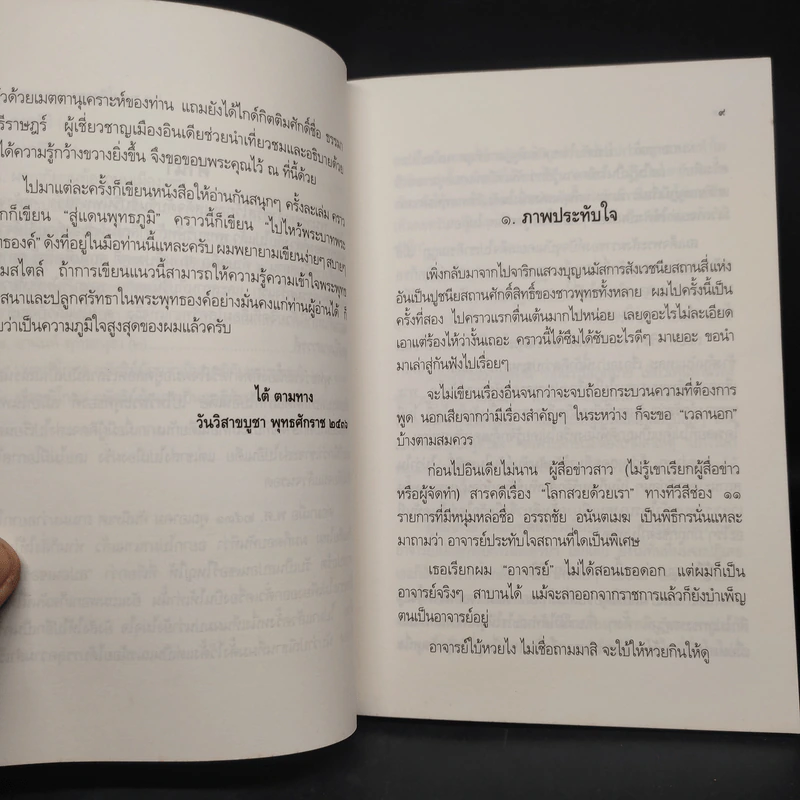 ด้วยเมตตานุเคราะห์ของท่าน แถมยังได้ไกด์กิตติมศักดิ์ชื่อ ธรรมา
รีราษฎร์ ผู้เชี่ยวชาญเมืองอินเดียช่วยนำเที่ยวชมและอธิบายด้วย
ได้ความรู้กว้างขวางยิ่งขึ้น จึงขอขอบพระคุณไว้ ณ ที่นี้ด้วย
ไปมาแต่ละครั้งก็เขียนหนังสือให้อ่านกันสนุกๆ ครั้งละเล่ม คราว
กก็เขียน “สู่แดนพุทธภูมิ” คราวนี้ก็เขียน “ไปไหว้พระบาทพระ
ธองค์” ดังที่อยู่ในมือท่านนี้แหละครับ ผมพยายามเขียนง่ายๆ สบายๆ
มสไตล์ ถ้าการเขียนแนวนี้สามารถให้ความรู้ความเข้าใจพระพุทธ
สนาและปลูกศรัทธาในพระพุทธองค์อย่างมั่นคงแก่ท่านผู้อ่านได้ ก็
บว่าเป็นความภูมิใจสูงสุดของผมแล้วครับ
ไต้ ตามทาง
วันวิสาขบูชา พุทธศักราช ๒๕๓๖
๙
๑. ภาพประทับใจ
เพิ่งกลับมาจากไปจาริกแสวงบุญนมัสการสังเวชนียสถานสี่แห่ง
อันเป็นปูชนียสถานศักดิ์สิทธิ์ของชาวพุทธทั้งหลาย ผมไปครั้งนี้เป็น
ครั้งที่สอง ไปคราวแรกตื่นเต้นมากไปหน่อย เลยดูอะไรไม่ละเอียด
เอาแต่ร้องไห้ว่างั้นเถอะ คราวนี้ได้ซึมได้ซับอะไรดีๆ มาเยอะ ขอนำ
มาเล่าสู่กันฟังไปเรื่อยๆ
จะไม่เขียนเรื่องอื่นจนกว่าจะจบถ้อยกระบวนความที่ต้องการ
พูด นอกเสียจากว่ามีเรื่องสำคัญๆ ในระหว่าง ก็จะขอ “เวลานอก”
บ้างตามสมควร
ก่อนไปอินเดียไม่นาน ผู้สื่อข่าวสาว (ไม่รู้เขาเรียกผู้สื่อข่าว
หรือผู้จัดทำ) สารคดีเรื่อง “โลกสวยด้วยเรา” ทางทีวีสีช่อง ๑๑
รายการที่มีหนุ่มหล่อชื่อ อรรถชัย อนันตเมฆ เป็นพิธีกรนั่นแหละ
มาถามว่า อาจารย์ประทับใจสถานที่ใดเป็นพิเศษ
เธอเรียกผม “อาจารย์” ไม่ได้สอนเธอดอก แต่ผมก็เป็น
อาจารย์จริงๆ สาบานได้ แม้จะลาออกจากราชการแล้วก็ยังบำเพ็ญ
ตนเป็นอาจารย์อยู่
อาจารย์ใบ้หวยไง ไม่เชื่อถามมาสิ จะใบ้ให้หวยกินให้ดู